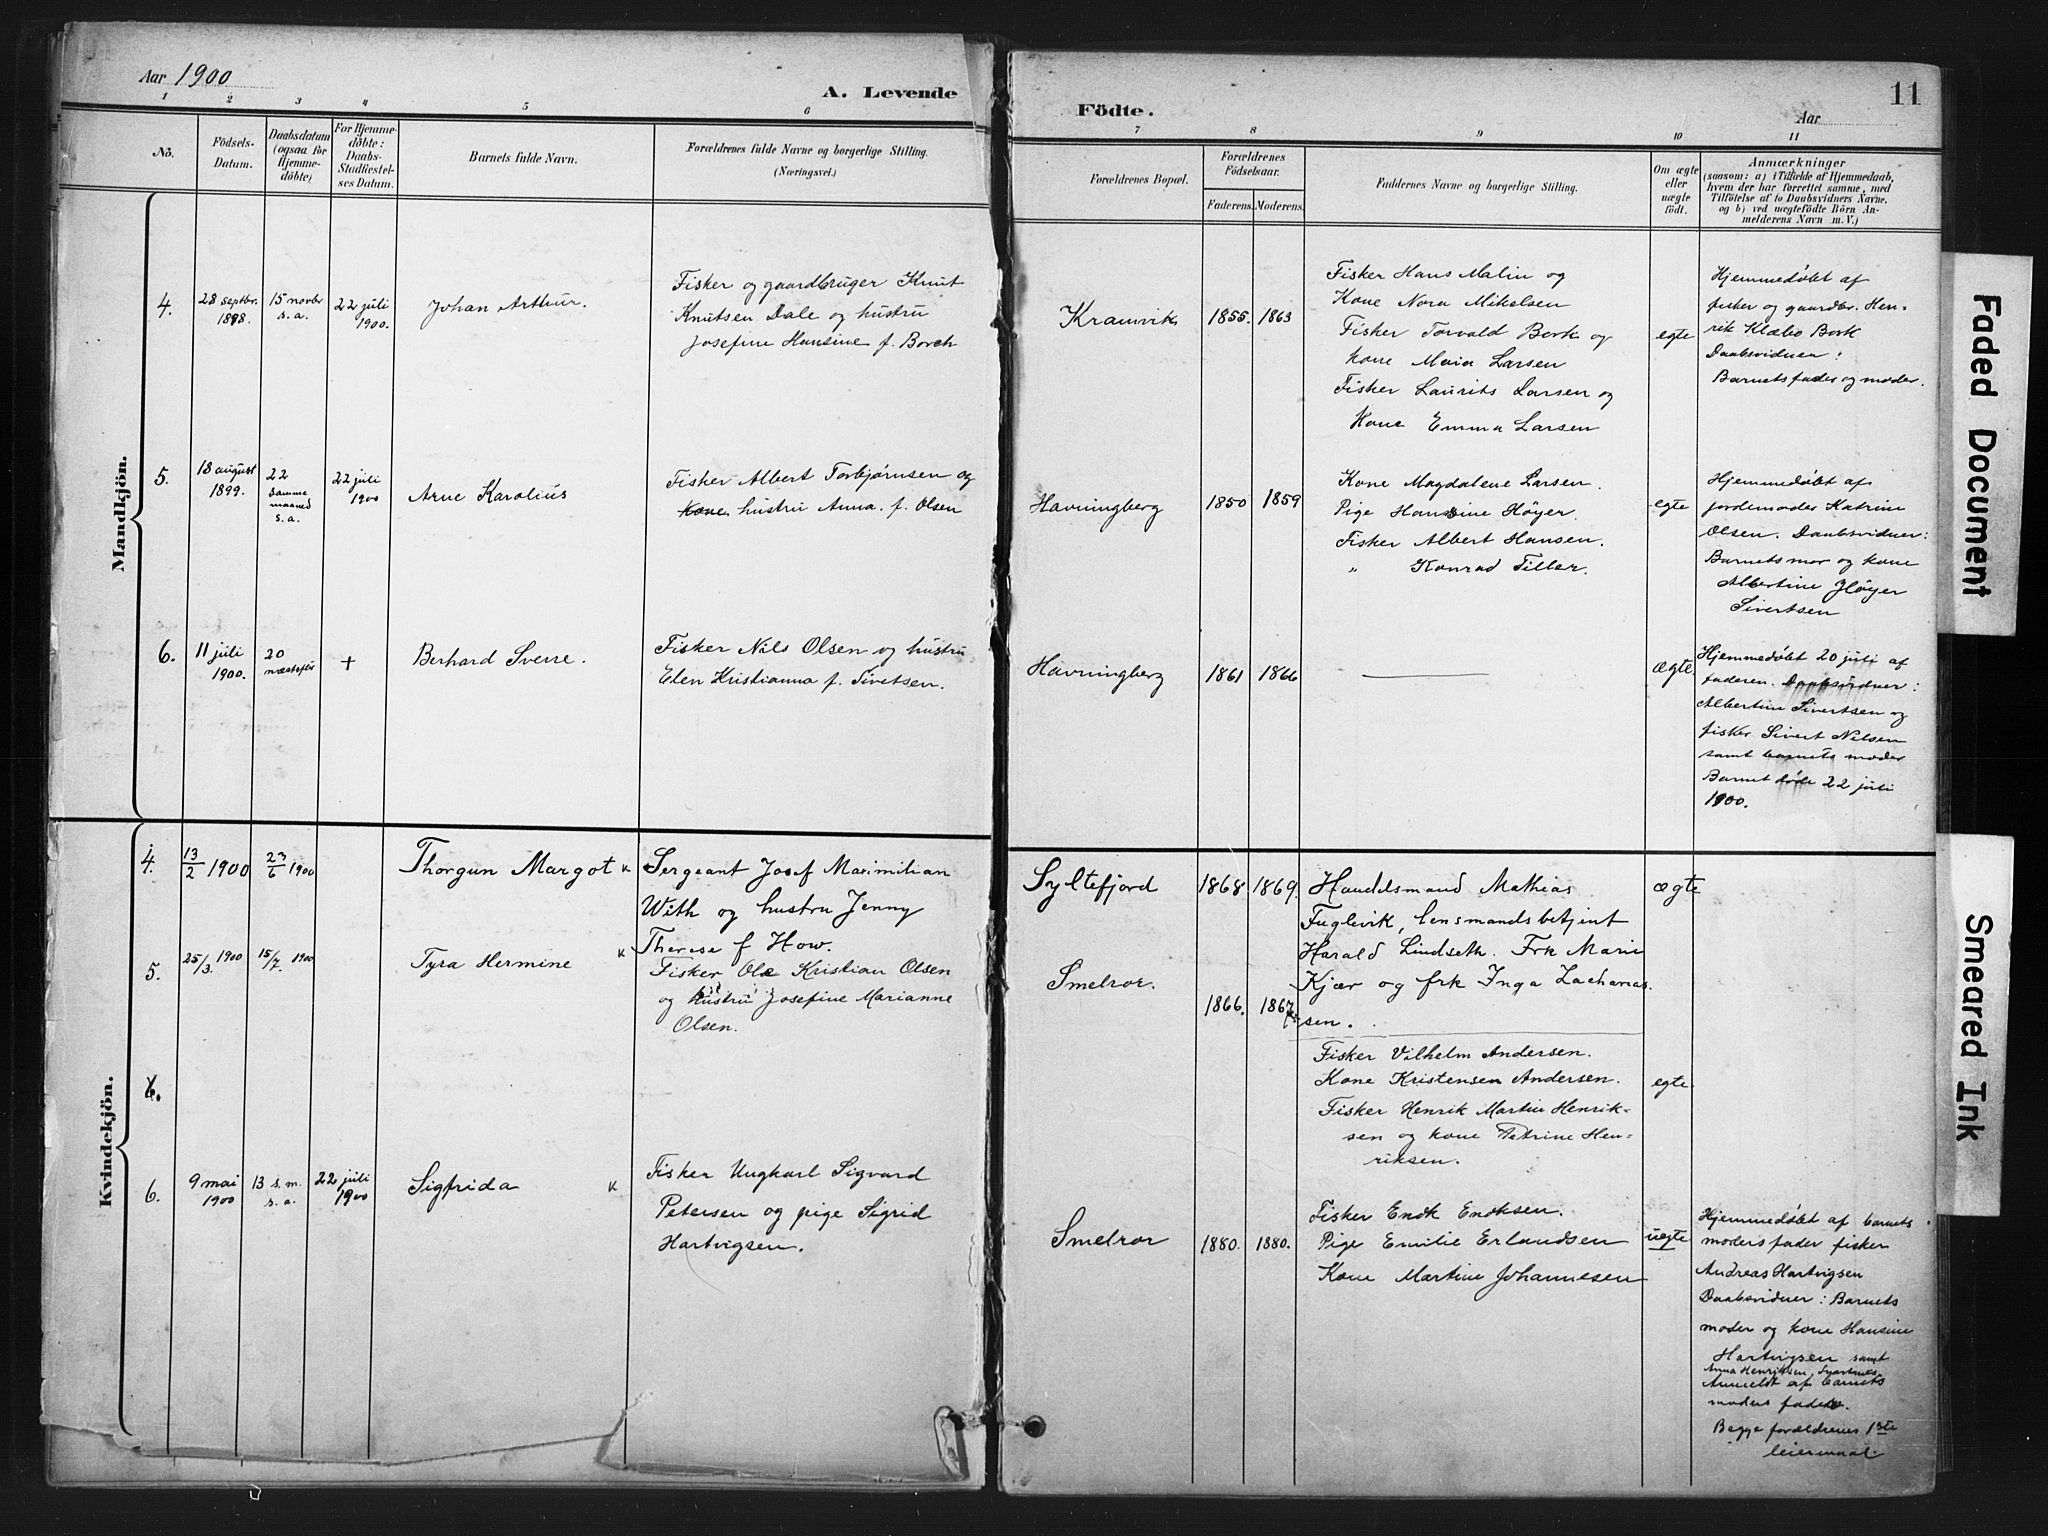 Aar 1900
A. Levende
1 2 3 4 5 6
No.
Födsels-
Datum.
Daabsdatum
(ogsaa for
Hjemme-
döbte)
For Hjemme-
döbte:
Daabs-
Stadfæstel-
ses Datum.
Barnets fulde Navn.
Forældrenes fulde Navne og borgerlige Stilling.
(Næringsvei.)
Mandkjön.
4.
28 septbr.
1898.
15 novbr
s. a.
22 juli
1900.
Johan Arthur.
Fisker og gaardbruger Knut
Knutsen Dale og hustru
Josefine Hansine f. Borch
5.
18 august
1899.
22
samme
maaned
s. a.
22 juli
1900
Arne Karolius
Fisker Albert Torbjørnsen og
Kone hustru Anna. f. Olsen
6.
11 juli
1900.
20
næstefter
+
Berhard Sverre.
Fisker Nils Olsen og hustru
Elen Kristianna f. Sivetsen.
Kvindekjön.
4.
13/2 1900
23/6 1900
Thorgun Margot
Sergeant Josef Maximilian
With og hustru Jenny
Therese f How.
5.
25/3. 1900
15/7. 1900
Tyra Hermine
Fisker Ole Kristian Olsen
og hustru Josefine Marianne
Olsen.
6.
6.
9 mai
1900
13 s. m.
s. a.
22 juli
1900
Sigfrida
Fisker Ungkarl Sigvard
Petersen og pige Sigrid
Hartvigsen.
11
Födte.
Aar
7 8 9 10 11
Forældrenes Bopæl.
Forældrenes
Födselsaar.
Faderens. Moderens.
Faddernes Navne og borgerlige Stilling.
Om ægte
eller
uægte
födt.
Anmærkninger
(saasom: a) i Tilfælde af Hjemmedaab,
hvem der har forrettet samme, med
Tilföielse af to Daabsvidners Navne,
og b) ved uægtefödte Börn An-
melderens Navn m. V.)
Kramvik
1855. 1863
Fisker Hans Malin og
Kone Nora Mikelsen
Fisker Torvald Bork og
kone Maia Larsen
Fisker Laurits Larsen og
Kone Emma Larsen
egte
Hjemmedøbt af
fisker og gaardbr. Hen-
rik Klæbo Bork
Daabsvidner:
Barnets fader og moder.
Havningberg
1850 1859
Kone Magdalene Larsen.
Pige Hansine Høyer.
Fisker Albert Hansen.
" Konrad Tiller.
egte
Hjemmedøbt af
jordemoder Katrine
Olsen. Daabsvidner:
Barnets mor og kone
Albertine Høyer
Sivertsen
Havningberg
1861 1866
ægte
Hjemmedøbt 20 juli af
faderen. Daabsvidner:
Albertine Sivertsen og
fisker Sivert Nilsen
samt barnets moder
Barnet døde 22 juli
1900.
Syltefjord
1868 1869.
Handelsmand Mathias
Fuglevik, lensmandsbetjent
Harald Lindseth. Frk Marie
Kjær og frk Inga Zacharias
sen.
ægte
Smelror.
1866. 1867
Fisker Vilhelm Andersen.
Kone Kristensen Andersen.
Fisker Henrik Martin Henrik-
sen og kone Petrine Hen-
riksen.
egte.
Smelror
1880. 1880.
Fisker Enok Enoksen.
Pige Emilie Erlandsen
Kone Martine Johannesen
uegte
Hjemmedøbt af barnets
moders fader fisker
Andreas Hartvigsen
Daabsvidner: Barnets
moder og kone Hansine
Hartvigsen samt
Anna Henriksen, Svartnes
Anmeldt af barnets
moders fader.
Begge forældrenes 1ste
leiermaal.
Faded Document
Smeared Ink